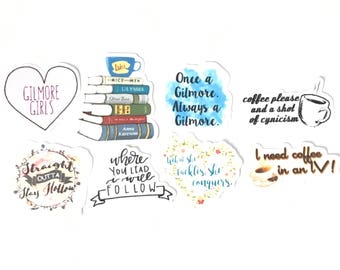 GILMORE
GIRLS
ULYSSES
Anna
Karenina
Once a
Gilmore.
Always a
Gilmore.
coffee please
and a shot
of cynicism
Straight
OUTTA
Stars Hollow
where
YOU LEAD
i will
FOLLOW
tackles. She
conquers.
I need coffee
in an IV!